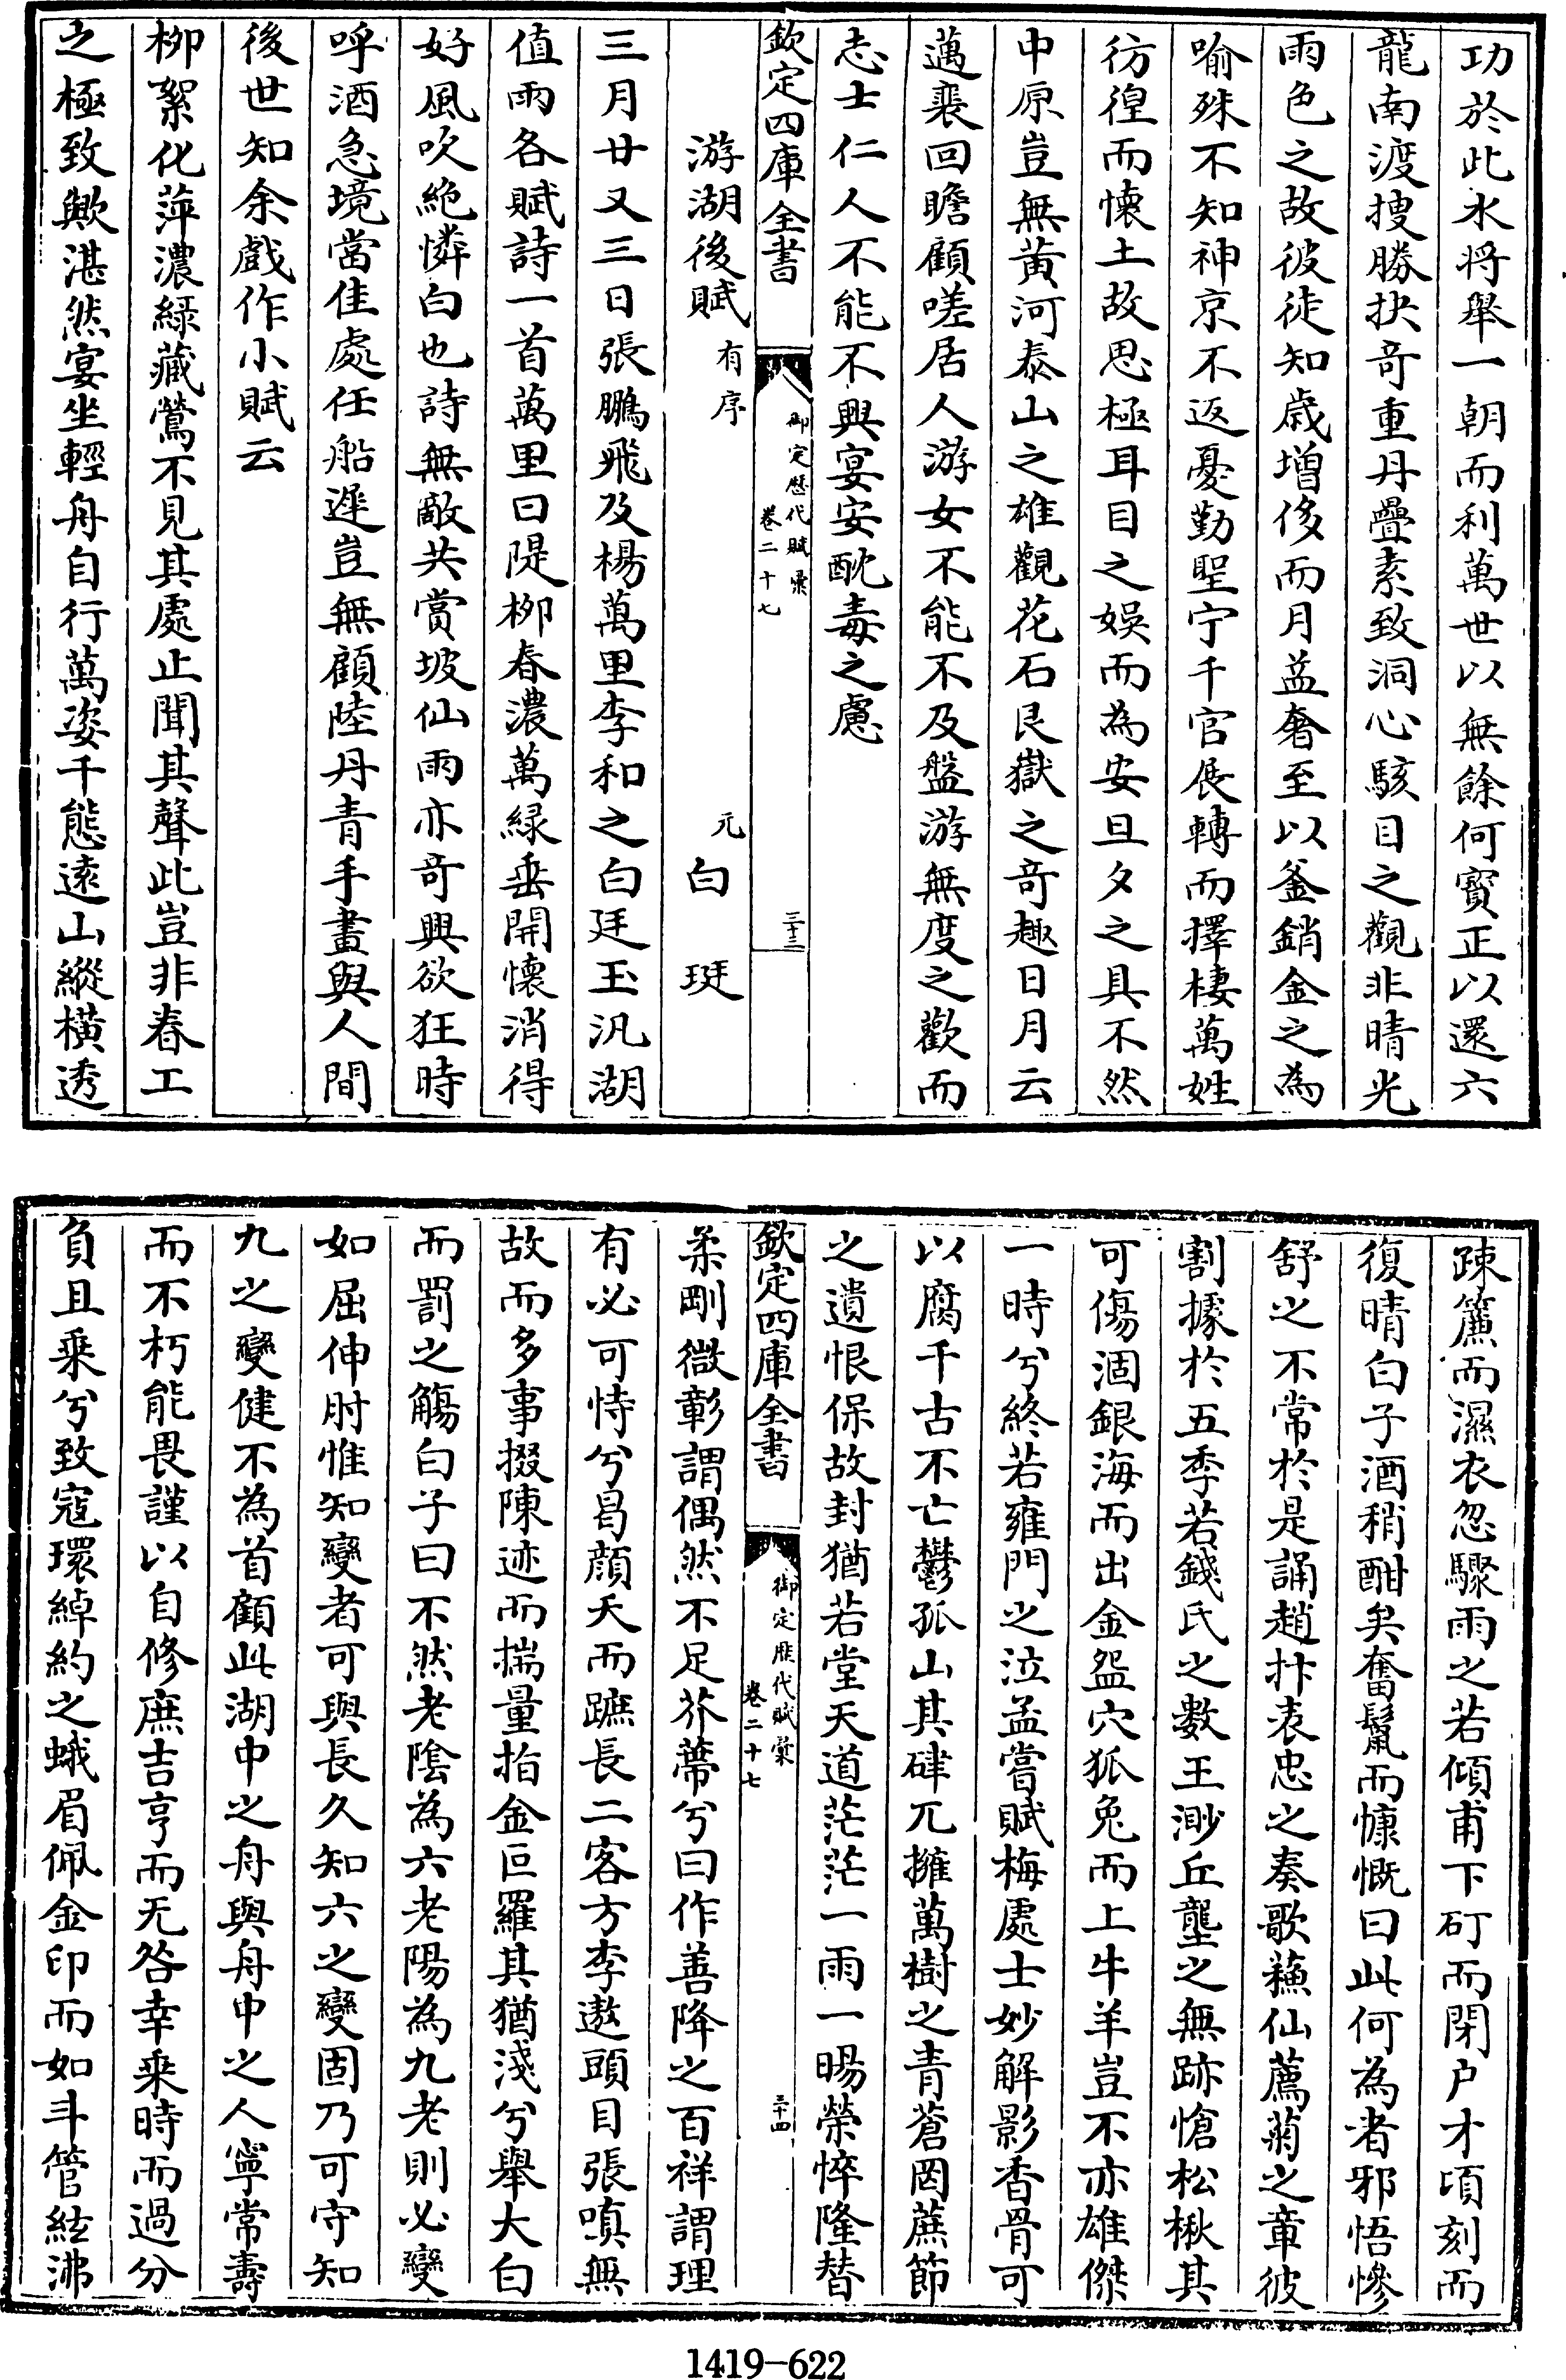 功於此水將舉一朝而利萬世以無餘何寳正以還六
龍南渡捜勝抉竒重丹疊素致洞心駭目之觀非晴光
雨色之故彼徒知歲增侈而月益奢至以釜銷金之為
喻殊不知神京不返憂勤聖宁千官展轉而擇棲萬姓
彷徨而懷土故思極耳目之娯而為安旦夕之具不然
中原豈無黄河泰山之雄觀花石艮嶽之竒趣日月云
邁裴回瞻顧嗟居人游女不能不及盤游無度之歡而
志士仁人不能不興宴安酖毒之慮
欽定四庫全書
御定歷代賦彙
卷二十七
三十三
游湖後賦有序 元白珽
三月廿又三日張鵬飛及楊萬里李和之白廷玉汎湖
值雨各賦詩一首萬里曰隄栁春濃萬緑垂開懷消得
好風吹絶憐白也詩無敵共賞坡仙雨亦竒興欲狂時
呼酒急境當佳處任船遲豈無顧陸丹青手畫與人間
後世知余戲作小賦云
栁絮化萍濃緑藏鶯不見其處止聞其聲此豈非春工
之極致歟湛然宴坐輕舟自行萬姿千態逺山縱横透
疎簾而濕衣忽驟雨之若傾甫下矴而閉户才頃刻而
復晴白子酒稍酣矣奮鬛而慷慨曰此何為者邪悟慘
舒之不常於是誦趙抃表忠之奏歌蘓仙薦菊之章彼
割據於五季若錢氏之數王渺丘壟之無跡愴松楸其
可傷涸銀海而出金盌穴狐兔而上牛羊豈不亦雄傑
一時兮終若雍門之泣孟嘗賦梅處士妙解影香骨可
以腐千古不亡鬱孤山其硉兀擁萬樹之青蒼罔蔗節
之遺恨保故封猶若堂天道茫茫一雨一暘榮悴隆替
欽定四庫全書
御定歷代賦彙
卷二十七
三十四
柔剛微彰謂偶然不足芥蔕兮曰作善降之百祥謂理
有必可恃兮曷顔夭而蹠長二客方李遨頭目張嗔無
故而多事掇陳迹而揣量指金叵羅其猶淺兮舉大白
而罰之觴白子曰不然老隂為六老陽為九老則必變
如屈伸肘惟知變者可與長久知六之變固乃可守知
九之變健不為首顧此湖中之舟與舟中之人寧常壽
而不朽能畏謹以自修庶吉亨而无咎幸乗時而過分
負且乗兮致寇環綽約之蛾眉佩金印而如斗管絃沸
1419-622